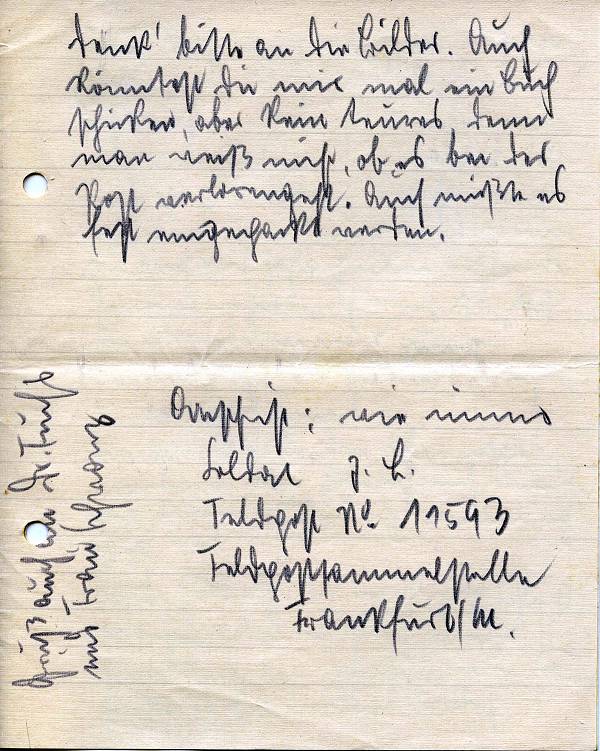 denk' bitte an die Bilder. Auch
könntest du mir mal ein Buch
schicken, aber kein teures denn
man weiß nicht, ob es bei der
Post verlorengeht. Auch müßte es
fest eingepackt werden.
Anschrift: wie immer
Soldat J. L.
Feldpost No 11593
Feldpostsammelstelle
Frankfurt/M.
Grüß auch an Dr.
und Frau